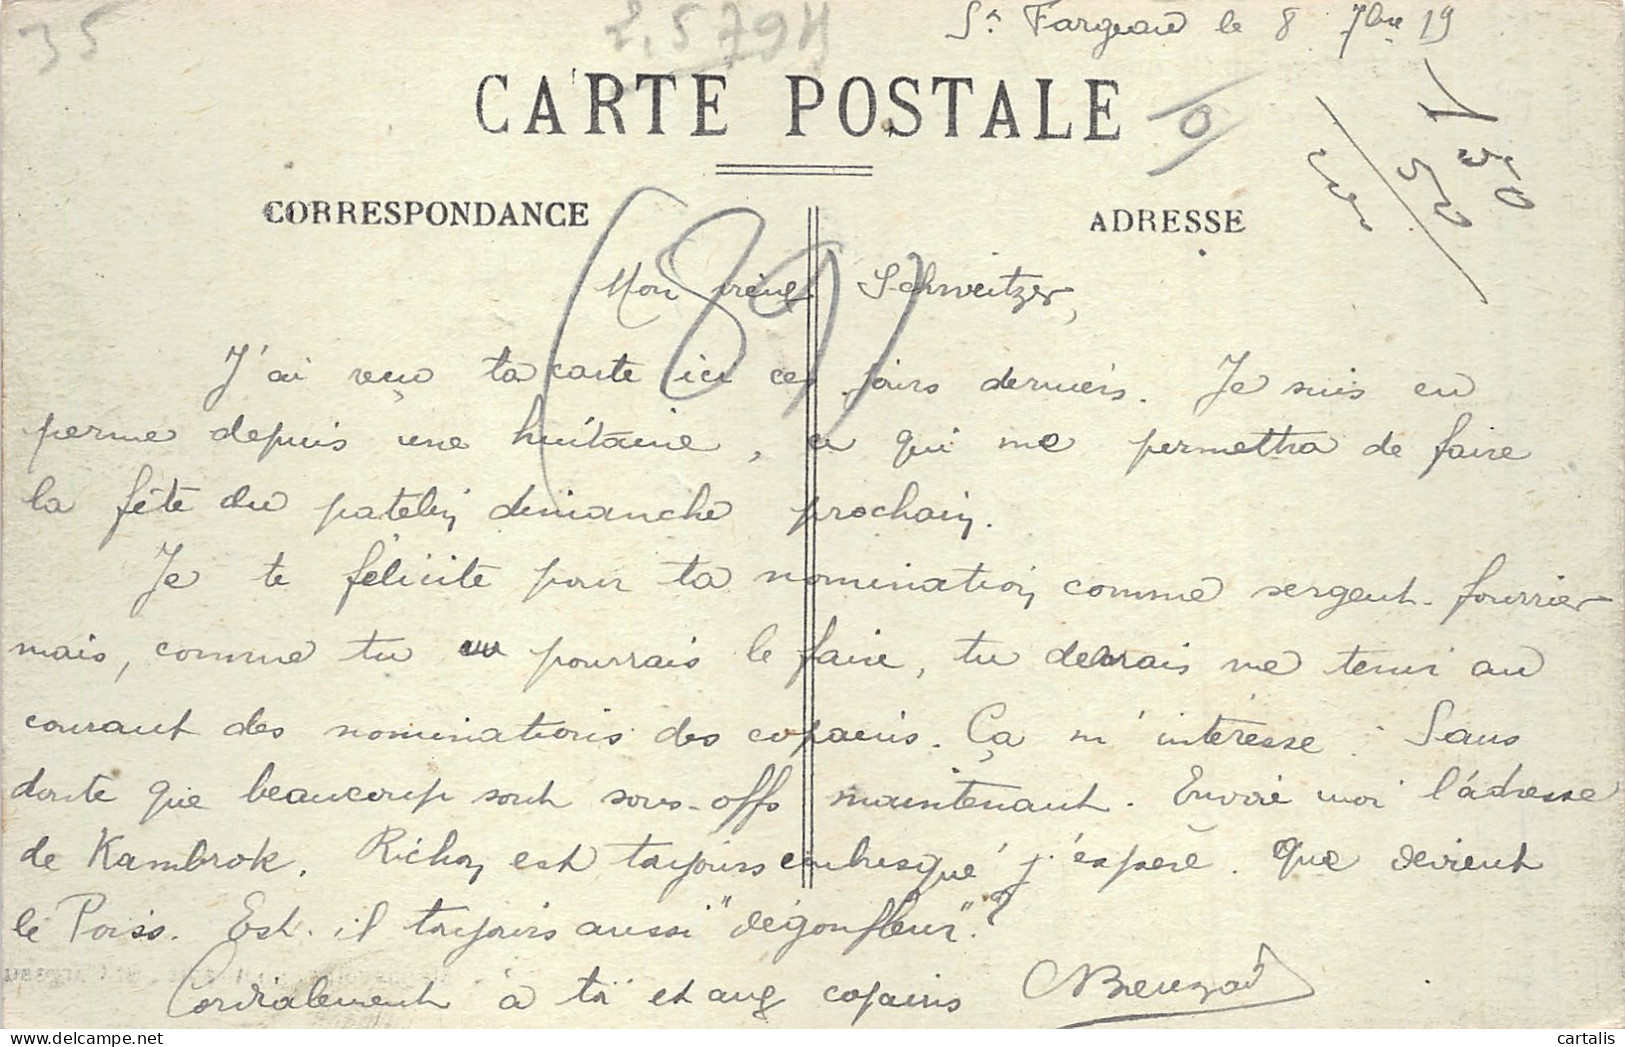 35
St Fargeau le 8 7bre 19
CARTE POSTALE
CORRESPONDANCE
ADRESSE
(89)
Mon vieux Schweitzer,
J'ai reçu ta carte ici ces jours derniers. Je suis en
perme depuis une huitaine, ce qui me permettra de faire
la fête du patelin dimanche prochain.
Je te félicite pour ta nomination comme sergent-fourrier
mais, comme tu pourrais le faire, tu devrais me tenir au
courant des nominations des copains. Ça m'intéresse. Sans
doute que beaucoup sont sous-offs maintenant. Envoie moi l'adresse
de Kambrok. Richon est toujours embusqué j'espère. Que devient
le Poiss. Est-il toujours aussi "dégonfleur"?
Cordialement à toi et aux copains
cartalis